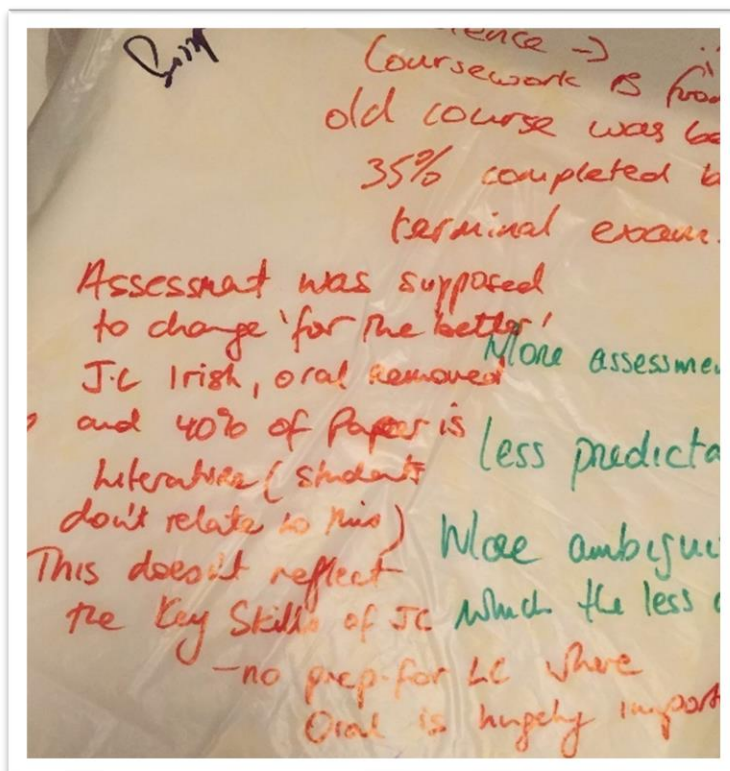 Coursework is
old course was
35% completed
terminal exam.
Assessment was supposed
to change 'for the better'
J.C Irish, oral removed
and 40% of Paper is
Literature (students
don't relate to this)
This doesn't reflect
the Key Skills of JC
-no prep for LC where
Oral is hugely
More
less
More
which the less